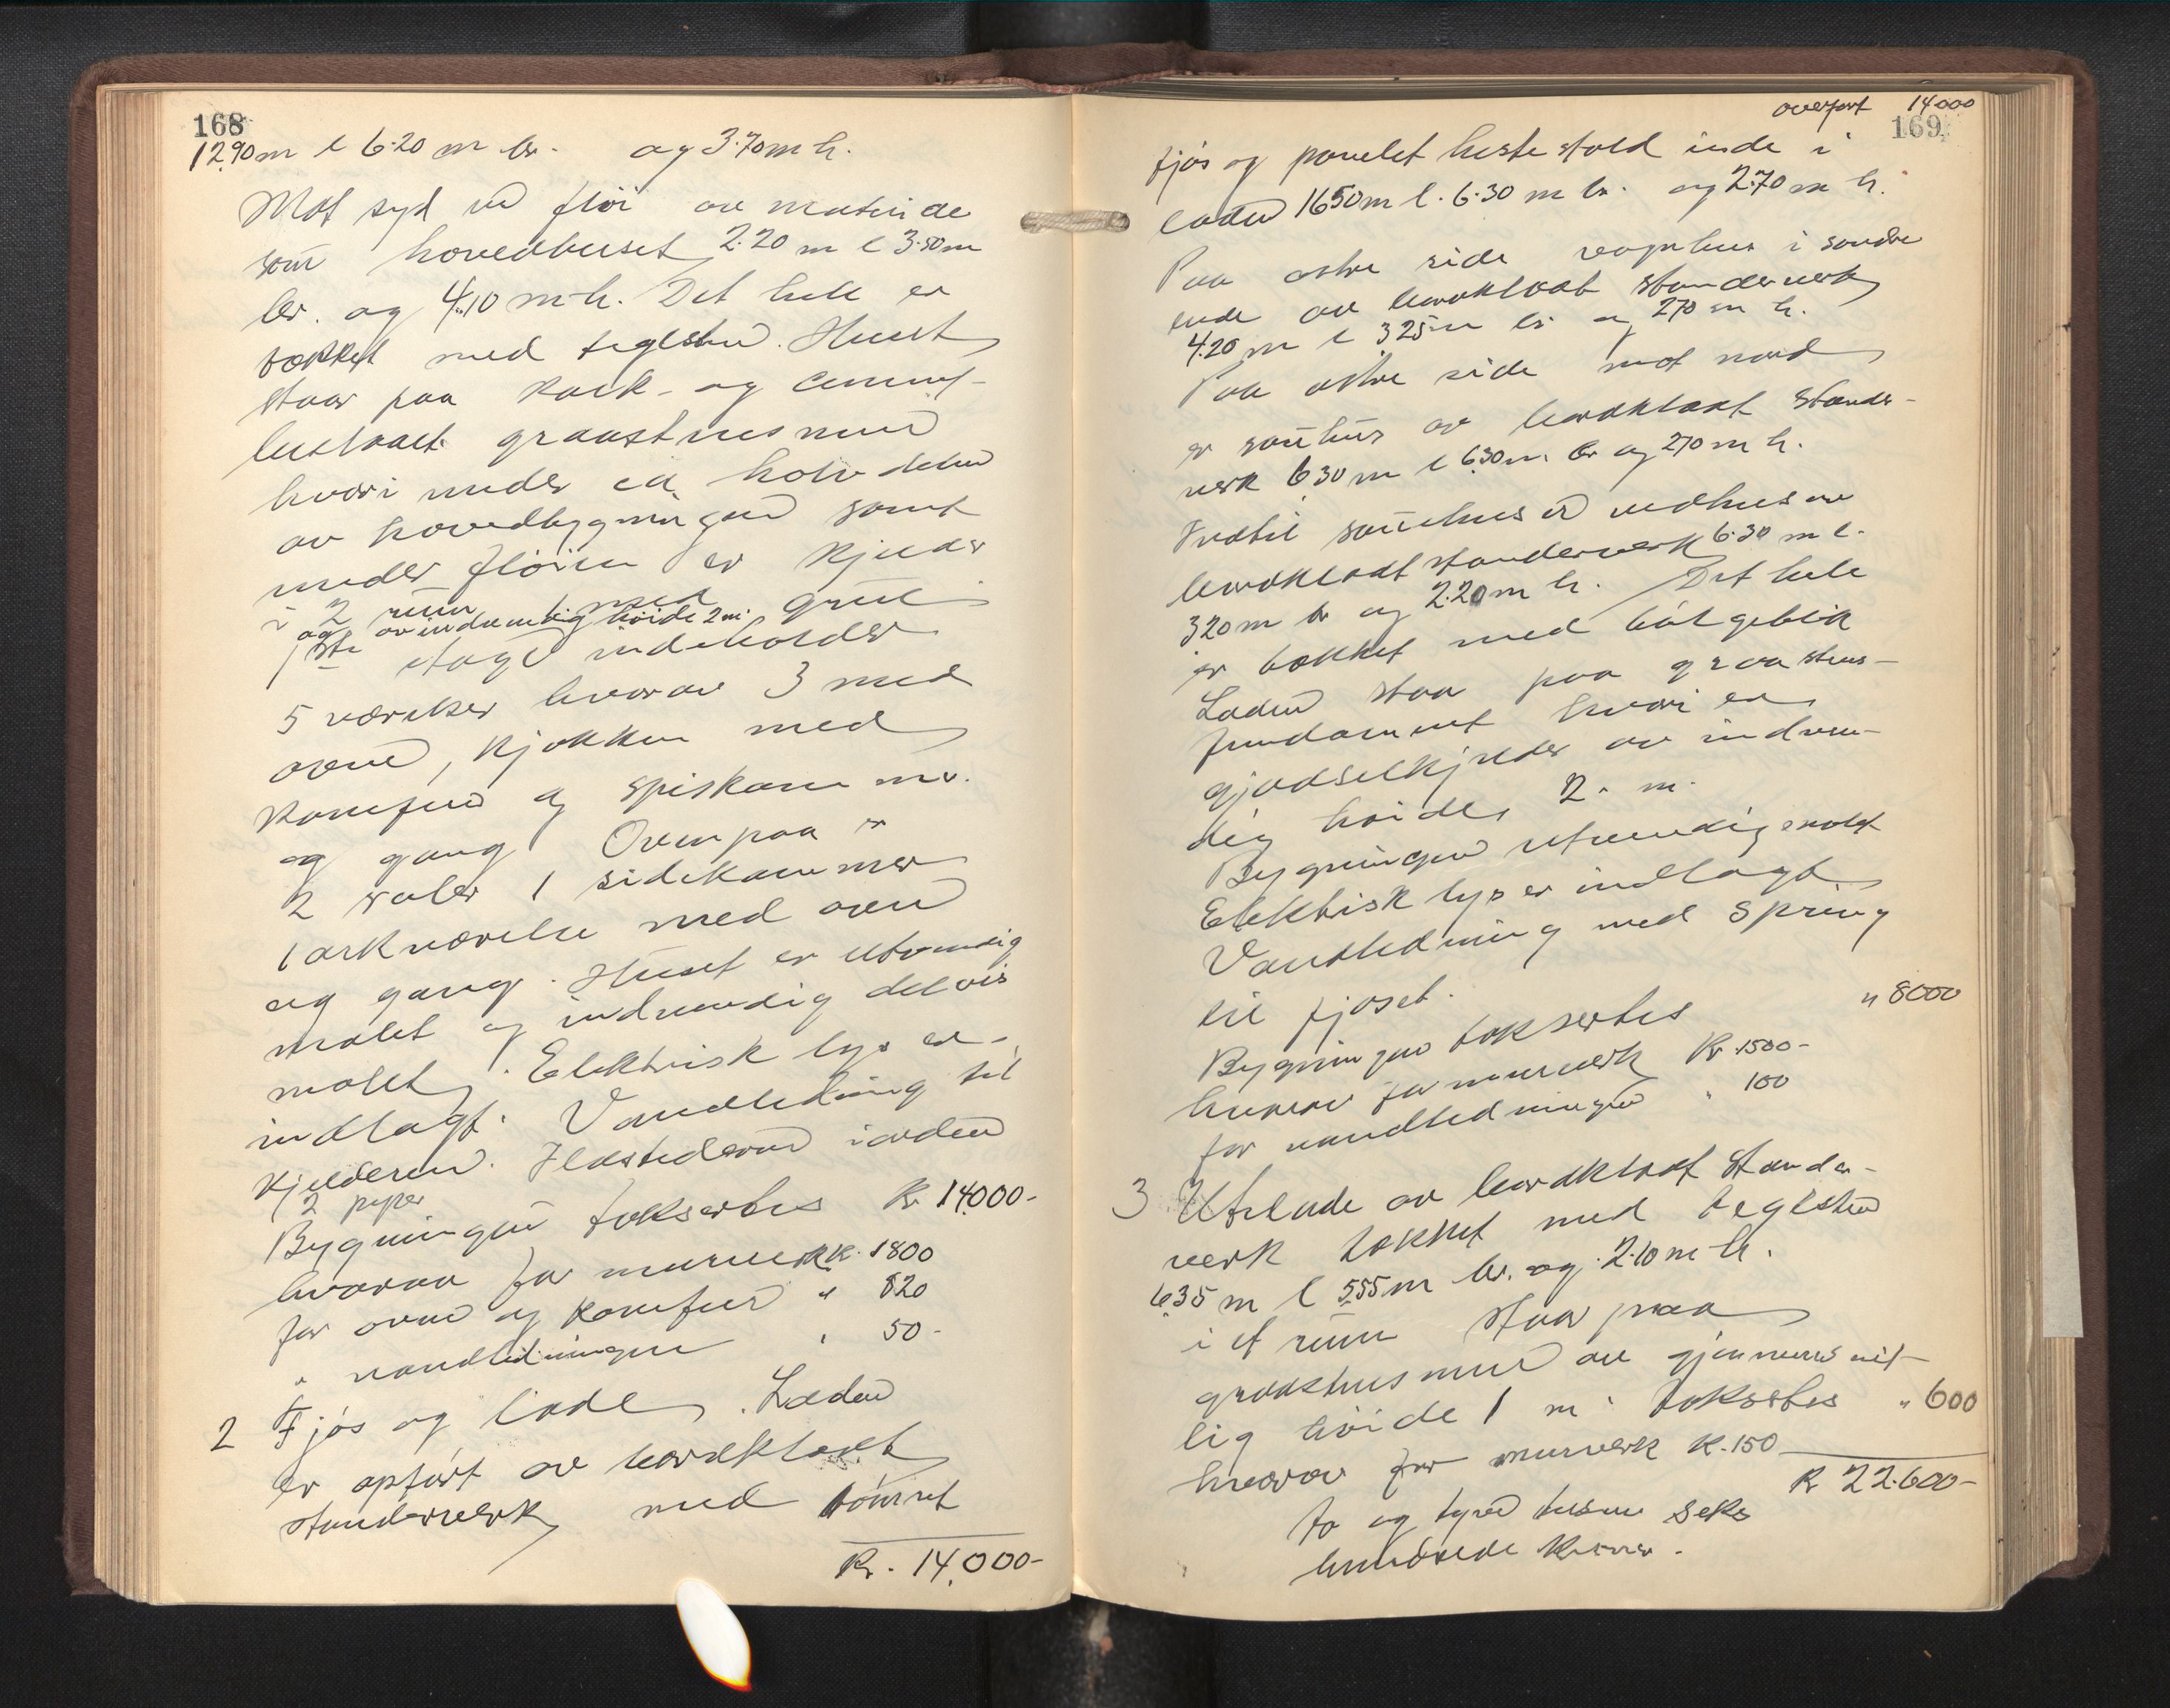 168
12.90 m l 6.20 m br. og 3.70 m h.
Mot syd en fløi av materiale
som hovedhuset 2.20 m l 3.50 m
br. og 4.10 m h. Det hele er
tækket med teglsten. Huset
staar paa kalk- og cement-
graastensmur
hvori under en halv delen
av hovedbygningen samt
under fløien er kjelder
i 2 rum med grue
og av indvendig høide 2 m.
1ste etage indeholder
5 værelser hvorav 3 med
ovne, kjøkken med
komfur og spiskammer
og gang. Ovenpaa er
2 saler 1 sidekammer
1 arkværelse med oven
og gang. Huset er utvendig
malet og indvendig delvis
malet. Elektrisk lys er
indlagt. Vandledning til
kjelderen. Ildstederne i orden
2 piper
Bygningen takseres Kr 14000-
hvorav for murverk Kr. 1800
for ovne og komfur " 820
" vandledningen " 50-
2 Fjøs og lade. Laden
er opført av bordklædt
stenderverk med tømret
Kr. 14.000-
overført 14000
169
fjøs og panelet hestestald inde i
laden 16.50 m l. 6.30 m br. og 2.70 m h.
Paa østre side vognhus i søndre
ende av bordklædt stenderverk
4.20 m l 3.25 m br og 2.70 m h.
Paa østre side mot nord
er sauhus av bordklædt stender-
verk 6.30 m l 6.30 m br og 2.70 m h.
Indtil sauehuset vedhus av
bordklædt stenderverk 6.30 m l.
3.20 m br og 2.20 m h. Det hele
er tækket med bølgeblik
Laden staar paa graastens-
fundament hvori er
gjødselkjelder av indven-
dig høide 2. m.
Bygningen utvendig malet
Elektrisk lys er indlagt
Vandledning med spring
til fjøset.
Bygningen takseres " 8000
hvorav for murverk Kr. 1500-
for vandledningen " 100
3 Utelade av bordklædt stender-
verk tækket med teglsten
6.35 m l 5.55 m br. og 2.10 m h.
i et rum staar paa
graastensmur av gjennemsnit-
lig høide 1 m. takseres " 600
hvorav for murverk K. 150
Kr 22.600-
to og tyve tusen seks
hundrede kroner.